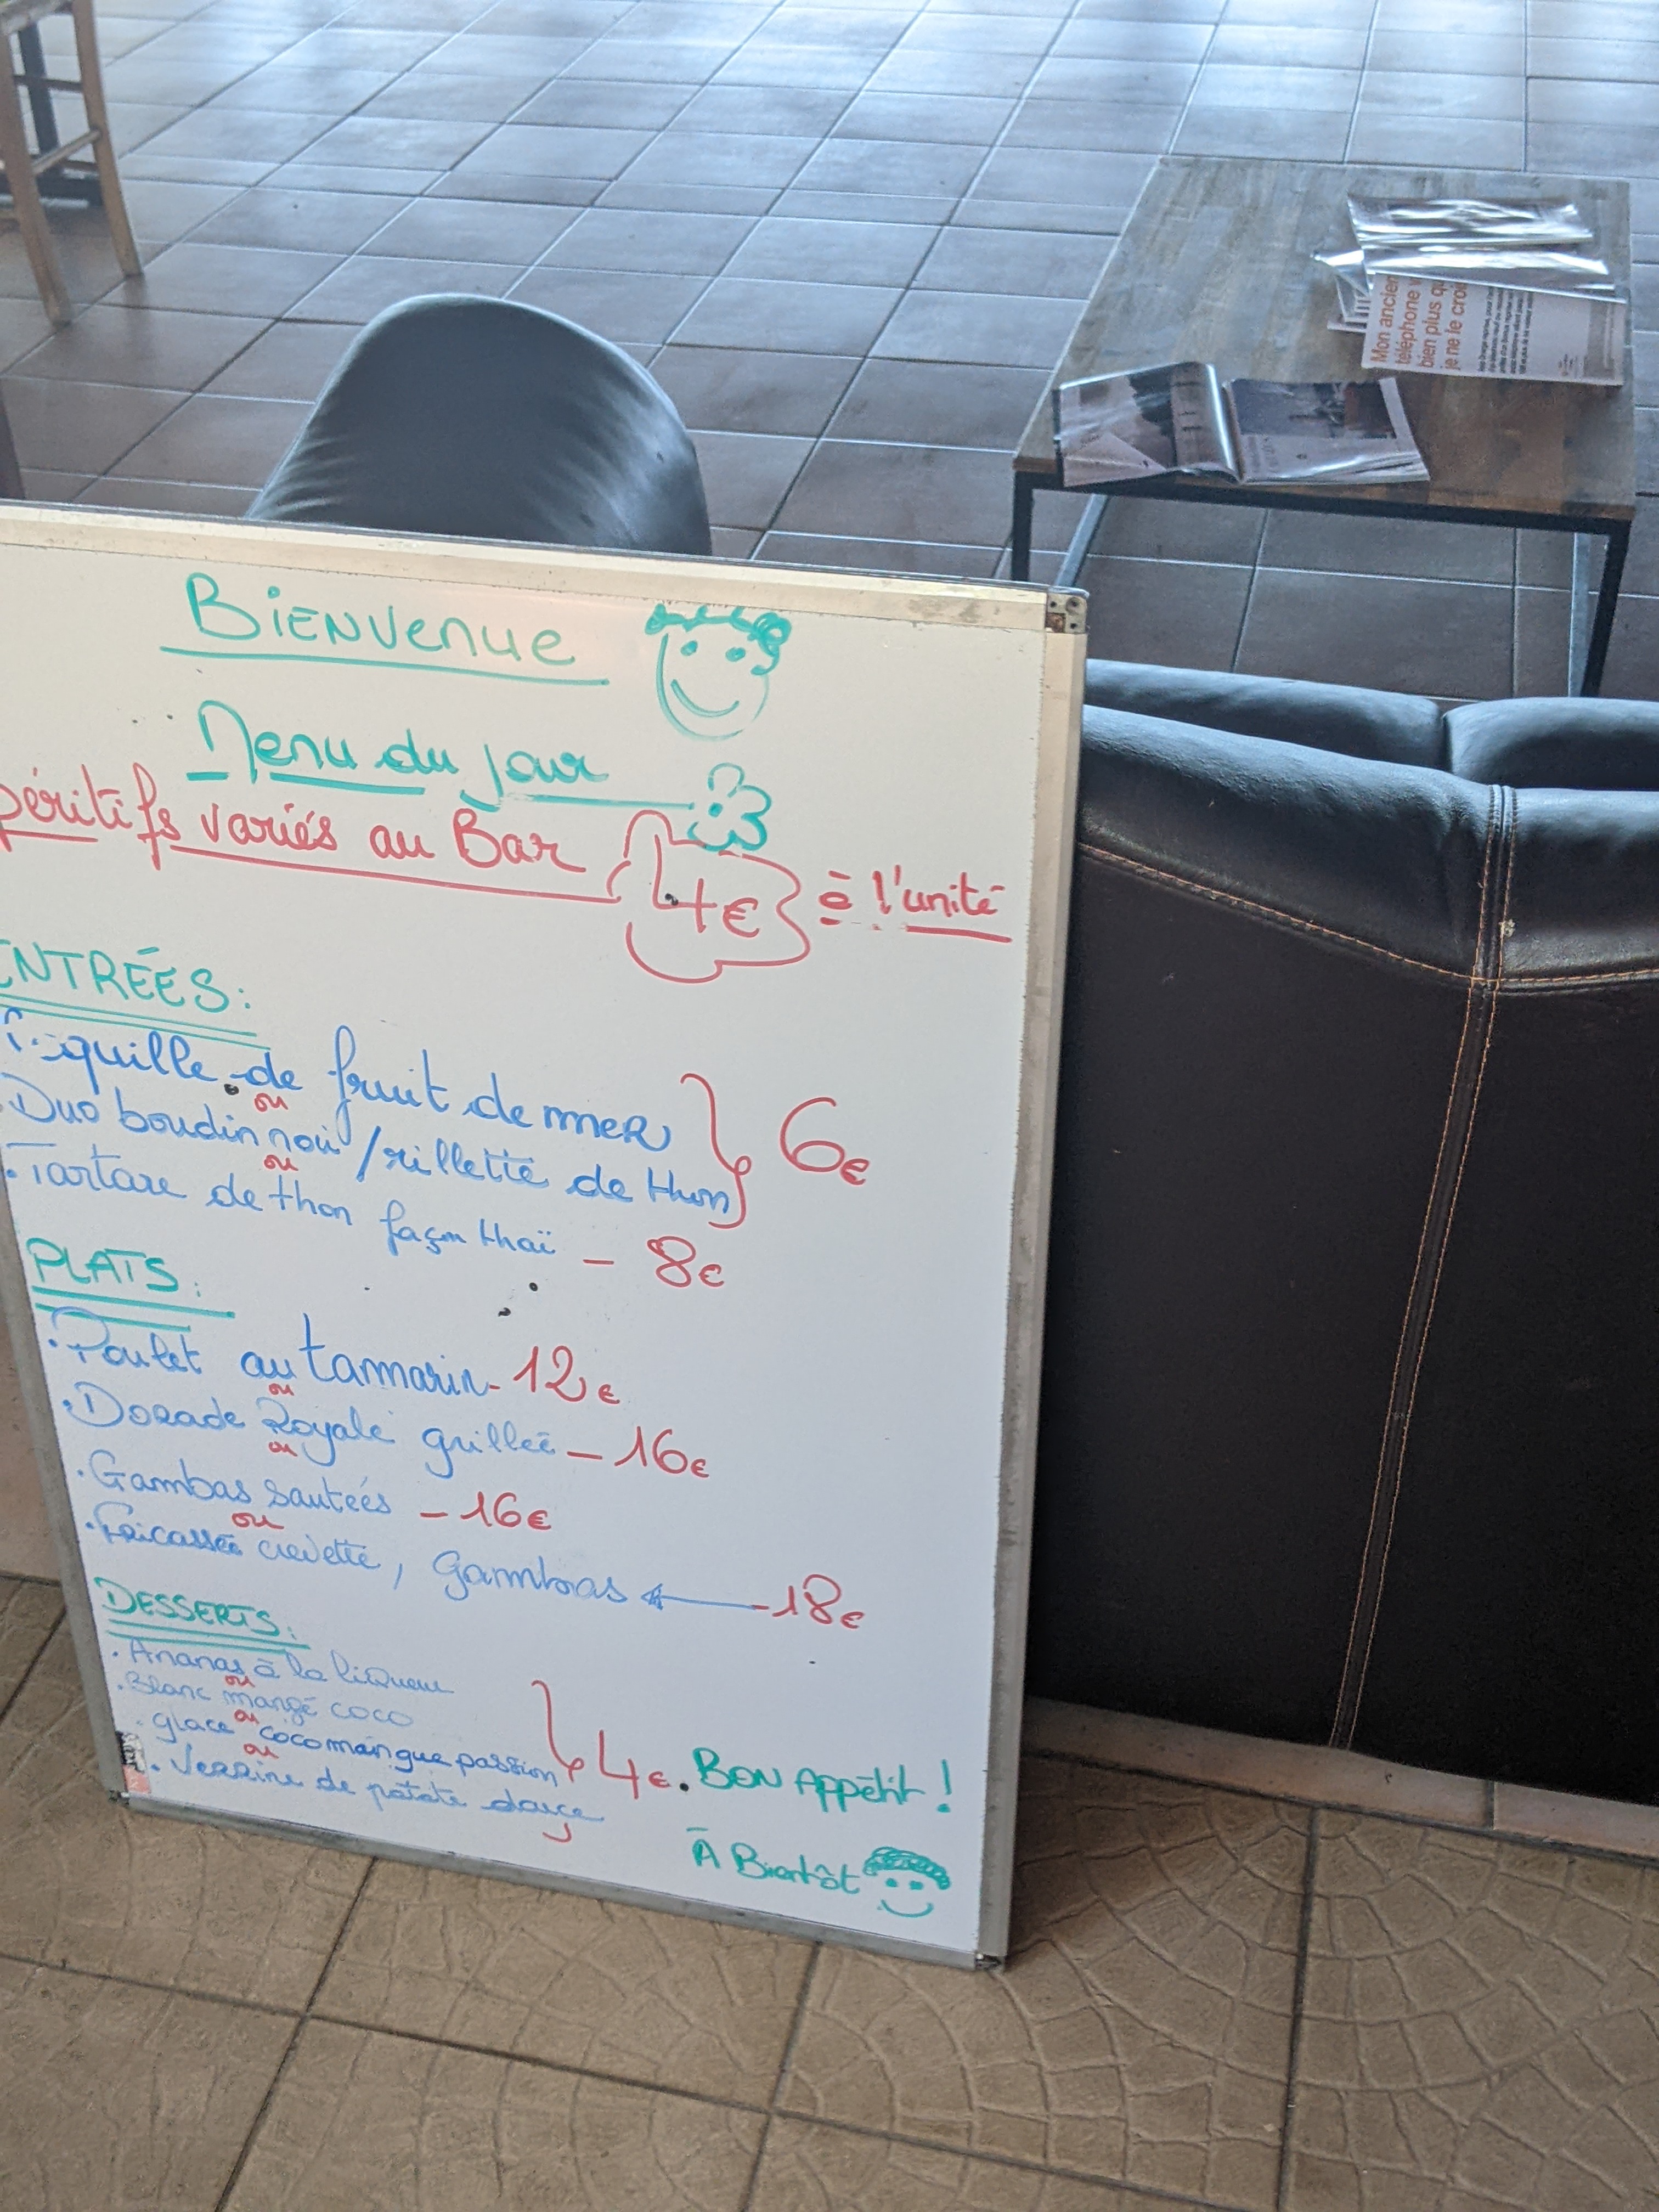 Bienvenue
Menu du jour
péritifs variés au Bar 4€ à l'unité
ENTRÉES:
quille de fruit de mer
ou
Duo boudin noir / rillette de thon 6€
ou
. Tartare de thon façon thaï - 8€
PLATS:
. Poulet au tamarin - 12€
ou
. Dorade Royale grillée - 16€
ou
. Gambas sautées - 16€
ou
. Fricassée crevette, gambas - 18€
DESSERTS:
. Ananas à la liqueur
ou
. Blanc mangé coco
ou
. glace coco mangue passion
ou
. Verrine de patate douce
4€. BON Appétit !
À Bientôt
Mon ancien
téléphone v
bien plus qu
je ne le croi